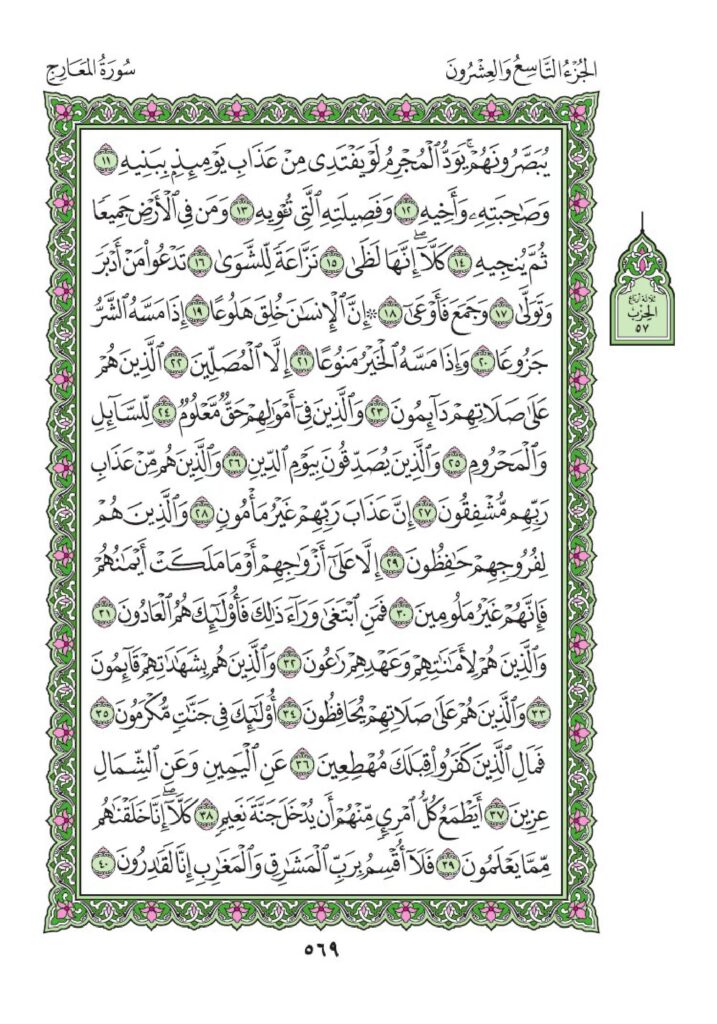 الجُزْءُ التَّاسِعُ وَالعِشْرُونَ
سُورَةُ المَعَارِجِ
يُبَصَّرُونَهُمْ ۚ يَوَدُّ ٱلْمُجْرِمُ لَوْ يَفْتَدِى مِنْ عَذَابِ يَوْمِئِذٍۭ بِبَنِيهِ ١١
وَصَٰحِبَتِهِۦ وَأَخِيهِ ١٢ وَفَصِيلَتِهِ ٱلَّتِى تُـْٔوِيهِ ١٣ وَمَن فِى ٱلْأَرْضِ جَمِيعًا
ثُمَّ يُنجِيهِ ١٤ كَلَّآ ۖ إِنَّهَا لَظَىٰ ١٥ نَزَّاعَةً لِّلشَّوَىٰ ١٦ تَدْعُوا۟ مَنْ أَدْبَرَ
وَتَوَلَّىٰ ١٧ وَجَمَعَ فَأَوْعَىٰٓ ١٨ ۞ إِنَّ ٱلْإِنسَٰنَ خُلِقَ هَلُوعًا ١٩ إِذَا مَسَّهُ ٱلشَّرُّ
جَزُوعًا ٢٠ وَإِذَا مَسَّهُ ٱلْخَيْرُ مَنُوعًا ٢١ إِلَّا ٱلْمُصَلِّينَ ٢٢ ٱلَّذِينَ هُمْ
عَلَىٰ صَلَاتِهِمْ دَآئِمُونَ ٢٣ وَٱلَّذِينَ فِىٓ أَمْوَٰلِهِمْ حَقٌّ مَّعْلُومٌ ٢٤ لِّلسَّآئِلِ
وَٱلْمَحْرُومِ ٢٥ وَٱلَّذِينَ يُصَدِّقُونَ بِيَوْمِ ٱلدِّينِ ٢٦ وَٱلَّذِينَ هُم مِّنْ عَذَابِ
رَبِّهِم مُّشْفِقُونَ ٢٧ إِنَّ عَذَابَ رَبِّهِمْ غَيْرُ مَأْمُونٍ ٢٨ وَٱلَّذِينَ هُمْ
لِفُرُوجِهِمْ حَٰفِظُونَ ٢٩ إِلَّا عَلَىٰٓ أَزْوَٰجِهِمْ أَوْ مَا مَلَكَتْ أَيْمَٰنُهُمْ
فَإِنَّهُمْ غَيْرُ مَلُومِينَ ٣٠ فَمَنِ ٱبْتَغَىٰ وَرَآءَ ذَٰلِكَ فَأُو۟لَٰٓئِكَ هُمُ ٱلْعَادُونَ ٣١
وَٱلَّذِينَ هُمْ لِأَمَٰنَٰتِهِمْ وَعَهْدِهِمْ رَٰعُونَ ٣٢ وَٱلَّذِينَ هُم بِشَهَٰدَٰتِهِمْ قَآئِمُونَ
٣٣ وَٱلَّذِينَ هُمْ عَلَىٰ صَلَاتِهِمْ يُحَافِظُونَ ٣٤ أُو۟لَٰٓئِكَ فِى جَنَّٰتٍ مُّكْرَمُونَ ٣٥
فَمَالِ ٱلَّذِينَ كَفَرُوا۟ قِبَلَكَ مُهْطِعِينَ ٣٦ عَنِ ٱلْيَمِينِ وَعَنِ ٱلشِّمَالِ
عِزِينَ ٣٧ أَيَطْمَعُ كُلُّ ٱمْرِئٍ مِّنْهُمْ أَن يُدْخَلَ جَنَّةَ نَعِيمٍ ٣٨ كَلَّآ ۖ إِنَّا خَلَقْنَٰهُم
مِّمَّا يَعْلَمُونَ ٣٩ فَلَآ أُقْسِمُ بِرَبِّ ٱلْمَشَٰرِقِ وَٱلْمَغَٰرِبِ إِنَّا لَقَٰدِرُونَ ٤٠
ثلاثة أرباع
الحزب
٥٧
٥٦٩